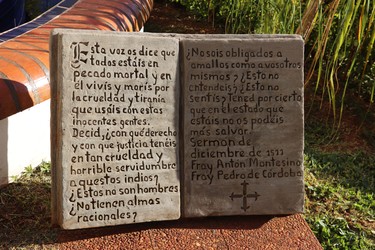 Esta voz os dice que
todos estáis en
pecado mortal y en
él vivís y morís por
la crueldad y tiranía
que usáis con estas
inocentes gentes.
Decid, ¿con qué derecho
y con qué justicia tenéis
en tan crueldad y
horrible servidumbre
a questos indios?
¿Estos no son hombres?
¿No tienen almas
racionales?
¿No sois obligados a
amallos como a vosotros
mismos? ¿Esto no
entendéis? ¿Esto no
sentís? Tened por cierto
que en el estado que
estáis no os podéis
más salvar.
Sermón de
diciembre de 1511
Fray Antón Montesino
Fray Pedro de Córdoba